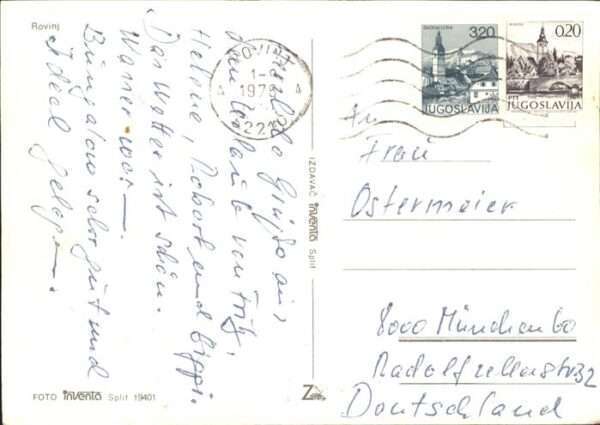 Rovinj
Herzliche Grüße aus
dem Urlaub von Fritz,
Helene, Robert und
Das Wetter ist schön.
Wasser
Bungalow sehr gut und
Ideal gelegen.
ROVINJ
1978
52210
320
JUGOSLAVIJA
0,20
PTT JUGOSLAVIJA
An
Frau
Ostermeier
8000 München 60
Radolfzellerstr 32
Deutschland
IZDAVAČ inventa Split
FOTO inventa Split 19401